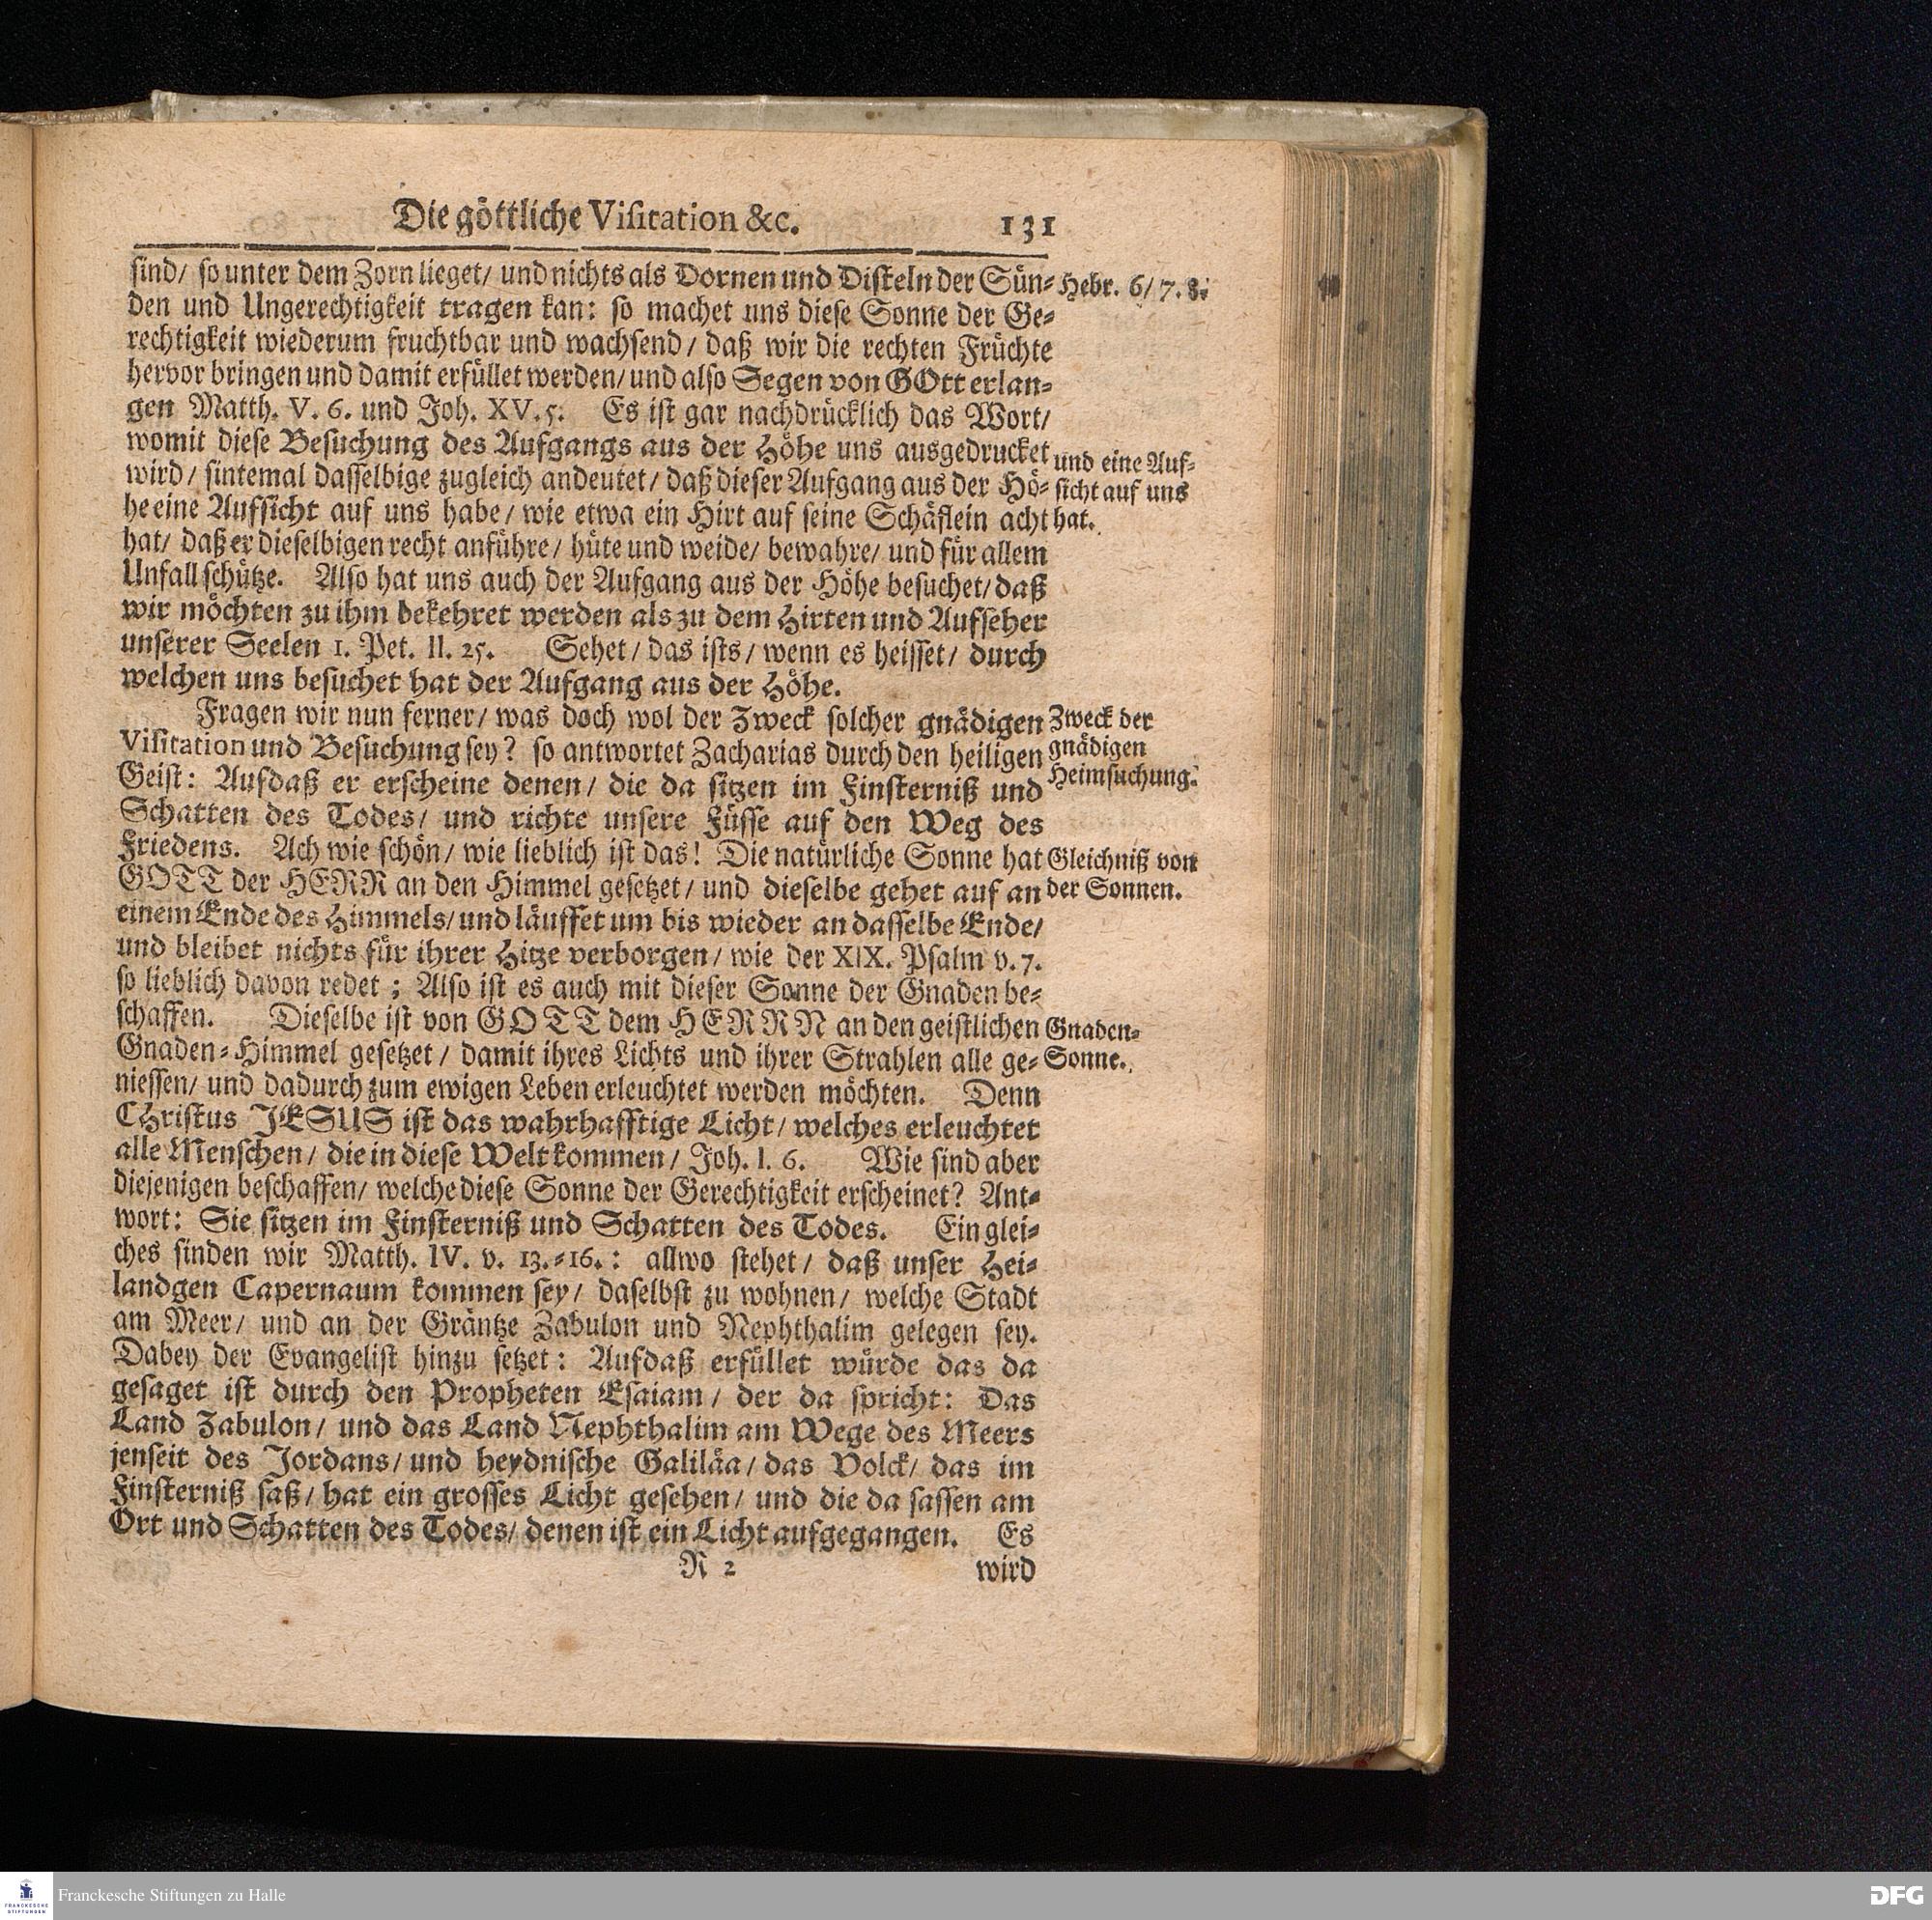 Die göttliche Visitation &c. 131
sind/ so unter dem Zorn lieget/ und nichts als Dornen und Disteln der Sün-
Hebr. 6/ 7. 8.
den und Ungerechtigkeit tragen kan: so machet uns diese Sonne der Ge-
rechtigkeit wiederum fruchtbar und wachsend/ daß wir die rechten Früchte
hervor bringen und damit erfüllet werden/ und also Segen von GOtt erlan-
gen Matth. V. 6. und Joh. XV. 5. Es ist gar nachdrücklich das Wort/
womit diese Besuchung des Aufgangs aus der Höhe uns ausgedrucket
wird/ sintemal dasselbige zugleich andeutet/ daß dieser Aufgang aus der Hö-
he eine Aufsicht auf uns habe/ wie etwa ein Hirt auf seine Schäflein acht
und eine Auf-
sicht auf uns
hat.
hat/ daß er dieselbigen recht anführe/ hüte und weide/ bewahre/ und für allem
Unfall schütze. Also hat uns auch der Aufgang aus der Höhe besuchet/ daß
wir möchten zu ihm bekehret werden als zu dem Hirten und Aufseher
unserer Seelen 1. Pet. II. 25. Sehet/ das ists/ wenn es heisset/ durch
welchen uns besuchet hat der Aufgang aus der Höhe.
Fragen wir nun ferner/ was doch wol der Zweck solcher gnädigen
Visitation und Besuchung sey? so antwortet Zacharias durch den heiligen
Geist: Aufdaß er erscheine denen/ die da sitzen im Finsterniß und
Zweck der
gnädigen
Heimsuchung.
Schatten des Todes/ und richte unsere Füsse auf den Weg des
Friedens. Ach wie schön/ wie lieblich ist das! Die natürliche Sonne hat
GOTT der HERR an den Himmel gesetzet/ und dieselbe gehet auf an
Gleichniß von
der Sonnen.
einem Ende des Himmels/ und läuffet um bis wieder an dasselbe Ende/
und bleibet nichts für ihrer Hitze verborgen/ wie der XIX. Psalm v. 7.
so lieblich davon redet; Also ist es auch mit dieser Sonne der Gnaden be-
schaffen. Dieselbe ist von GOTT dem HERRN an den geistlichen
Gnaden-Himmel gesetzet/ damit ihres Lichts und ihrer Strahlen alle ge-
Gnaden-
Sonne.
niessen/ und dadurch zum ewigen Leben erleuchtet werden möchten. Denn
CHristus JESUS ist das wahrhafftige Licht/ welches erleuchtet
alle Menschen/ die in diese Welt kommen/ Joh. I. 6. Wie sind aber
diejenigen beschaffen/ welche diese Sonne der Gerechtigkeit erscheinet? Ant-
wort: Sie sitzen im Finsterniß und Schatten des Todes. Ein glei-
ches finden wir Matth. IV. v. 13.-16.: allwo stehet/ daß unser Hei-
land gen Capernaum kommen sey/ daselbst zu wohnen/ welche Stadt
am Meer/ und an der Gräntze Zabulon und Nephthalim gelegen sey.
Dabey der Evangelist hinzu setzet: Aufdaß erfüllet würde das da
gesaget ist durch den Propheten Esaiam/ der da spricht: Das
Land Zabulon/ und das Land Nephthalim am Wege des Meers
jenseit des Jordans/ und heydnische Galiläa/ das Volck/ das im
Finsterniß saß/ hat ein grosses Licht gesehen/ und die da sassen am
Ort und Schatten des Todes/ denen ist ein Licht aufgegangen. Es
R 2 wird
FRANCKESCHE
STIFTUNGEN
Franckesche Stiftungen zu Halle
DFG